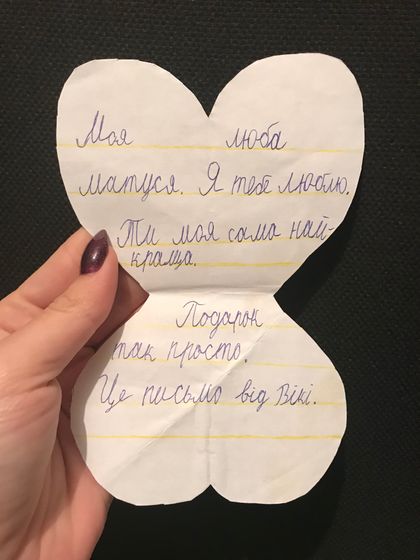 Моя люба
матуся. Я тебе люблю.
Ти моя само най-
краща.
Подарок
так просто.
Це письмо від Вікі.